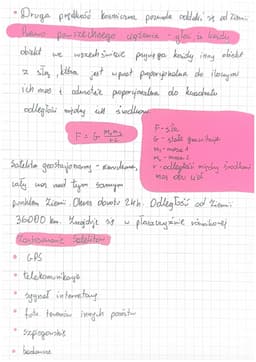 • Druga prędkość kosmiczna pozwala oddalić się od Ziemi
Prawo powszechnego ciążenia - głosi że każdy
obiekt we wszechświecie przyciąga każdy inny obiekt
z siłą, która jest wprost proporcjonalna do iloczynu
ich mas i odwrotnie proporcjonalna do kwadratu
odległości między ich środkami.
F = G M₁M₂/r²
F - siła
G - stała grawitacji
m₁ - masa 1
m₂ - masa 2
r - odległość między środkami
mas obu ciał
Satelita geostacjonarny -
cały czas nad tym samym
punktem Ziemi. Okres obrotu 24h. Odległość od Ziemi
36000 km. Znajduje się w płaszczyźnie równikowej
Zastosowanie satelitów
• GPS
• telekomunikacja
• sygnał internetowy
• foto. terenów innych państw
• szpiegowskie
• badawcze